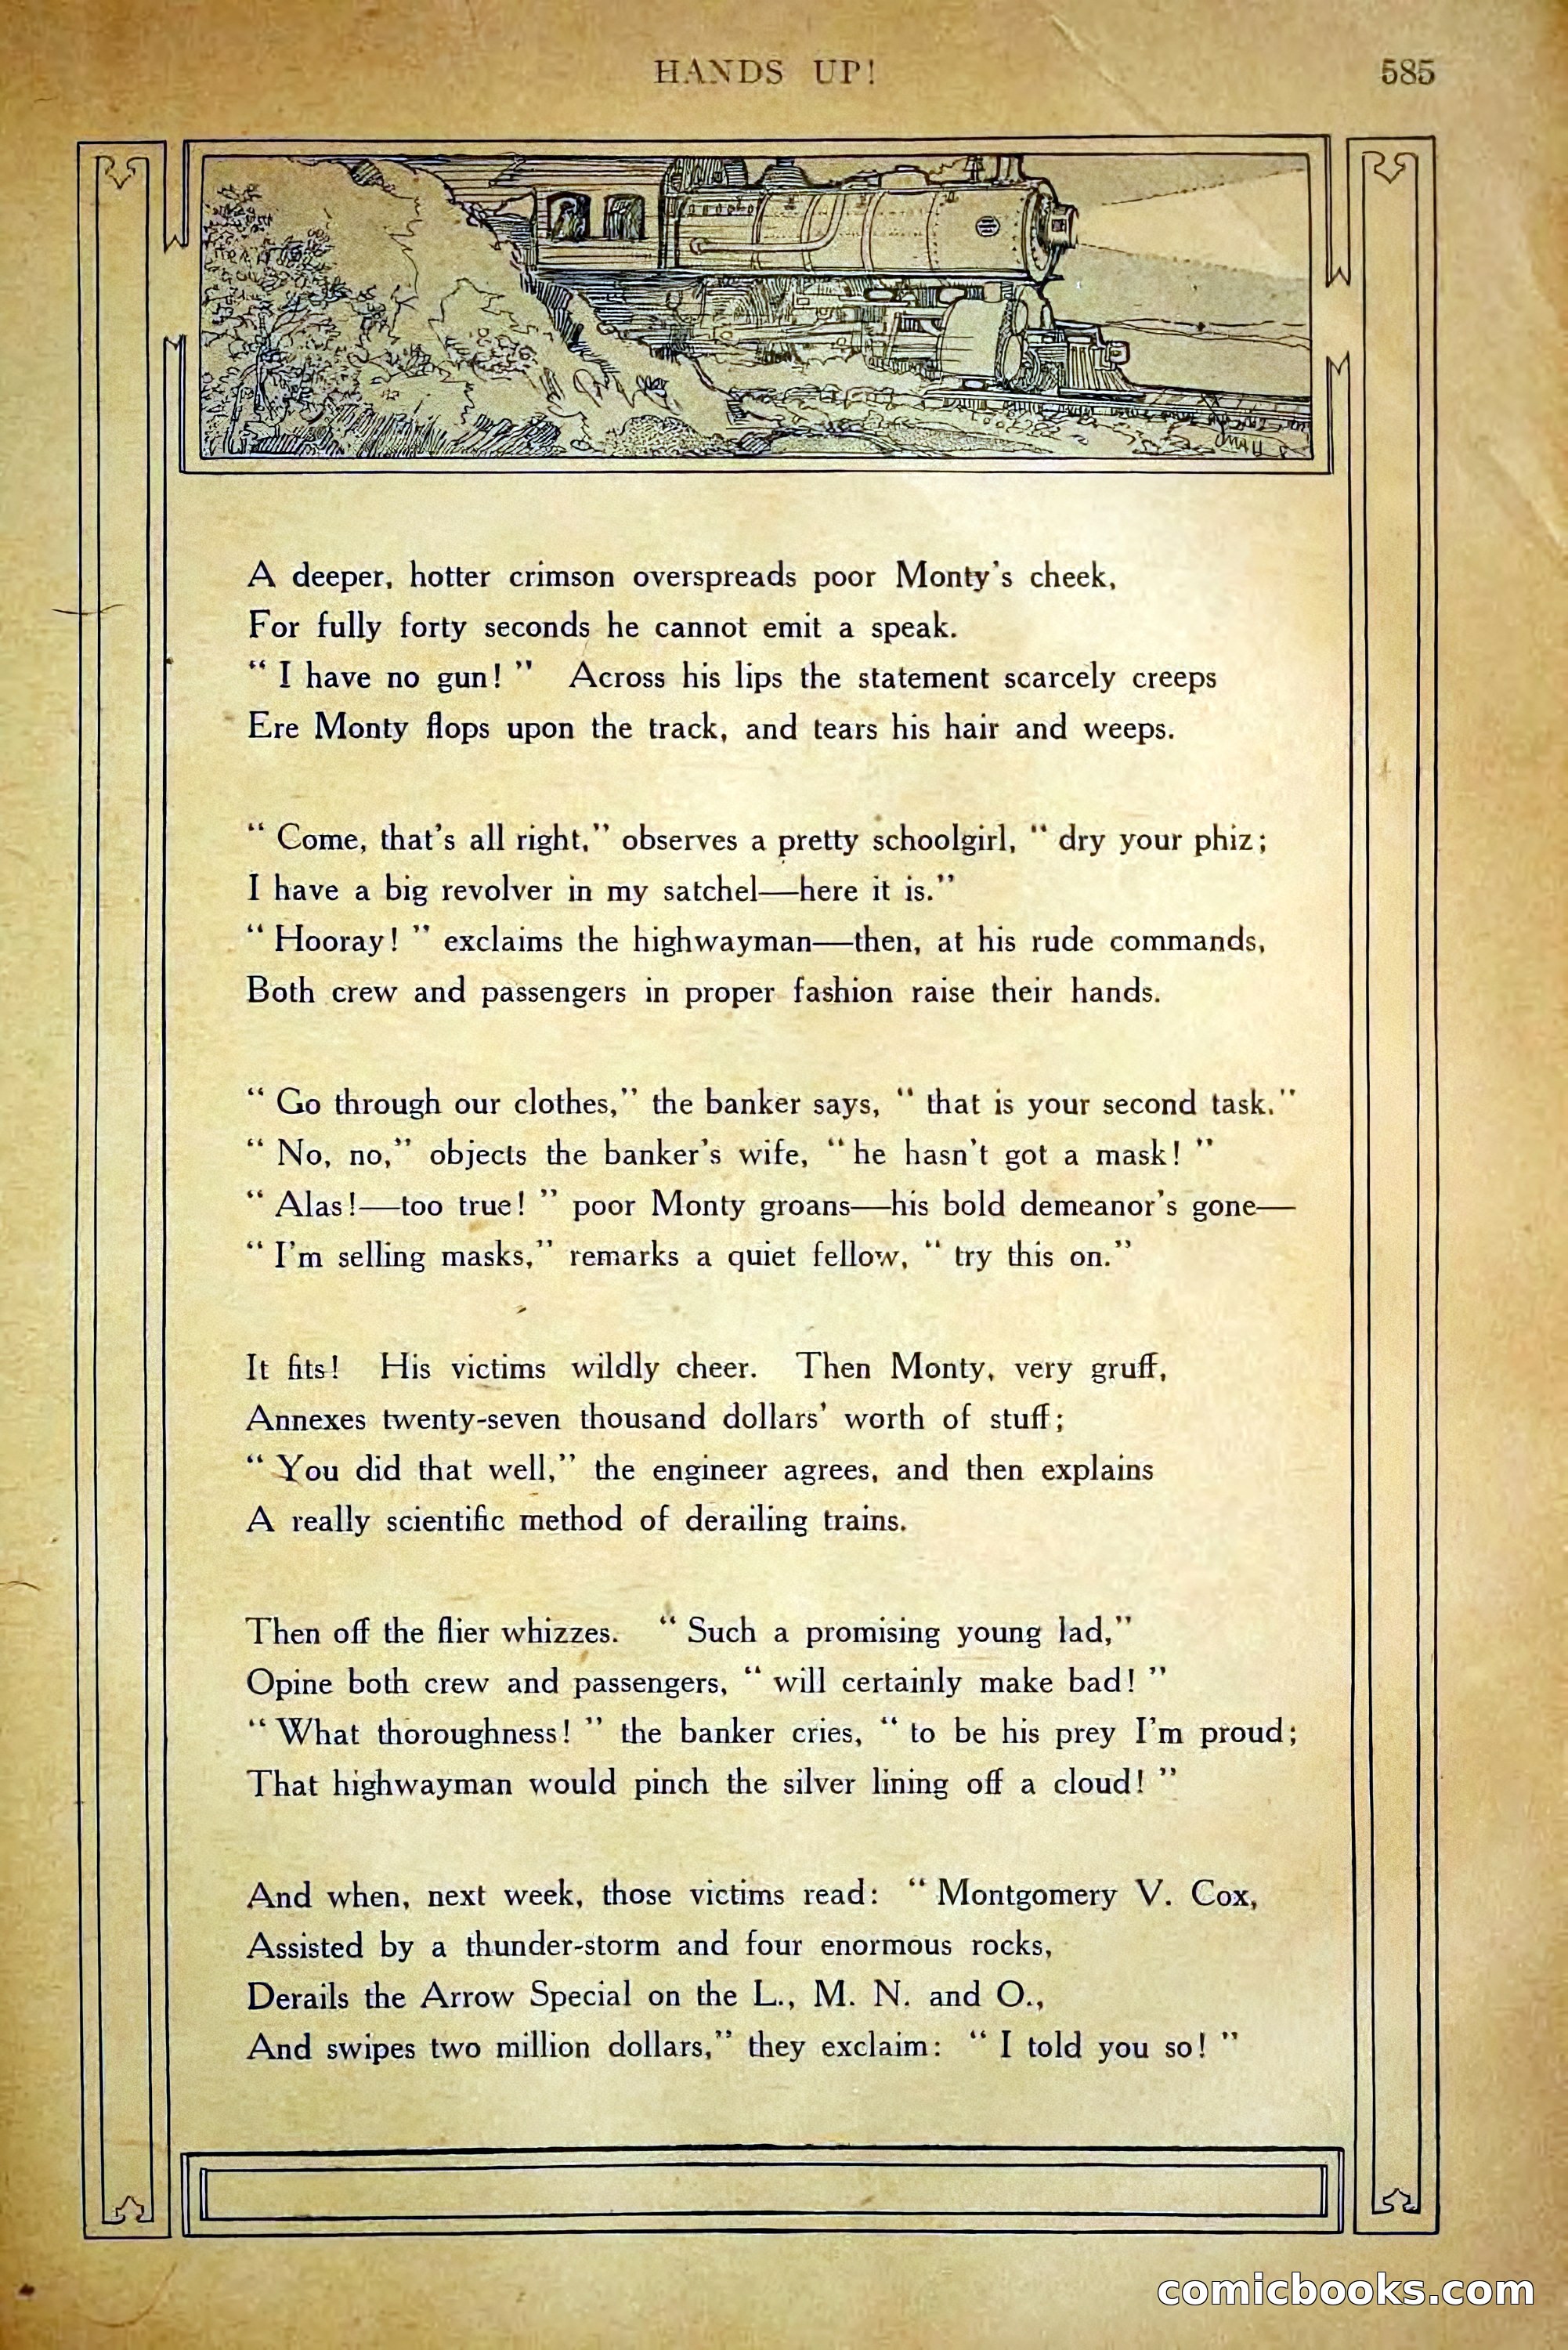 HANDS UP!
585
A deeper, hotter crimson overspreads poor Monty's cheek,
For fully forty seconds he cannot emit a speak.
“ I have no gun! ” Across his lips the statement scarcely creeps
Ere Monty flops upon the track, and tears his hair and weeps.
“ Come, that's all right,” observes a pretty schoolgirl, “ dry your phiz;
I have a big revolver in my satchel—here it is.”
“ Hooray! ” exclaims the highwayman—then, at his rude commands,
Both crew and passengers in proper fashion raise their hands.
“ Go through our clothes,” the banker says, “ that is your second task.”
“ No, no,” objects the banker's wife, “ he hasn't got a mask! ”
“ Alas!—too true! ” poor Monty groans—his bold demeanor's gone—
“ I'm selling masks,” remarks a quiet fellow, “ try this on.”
It fits! His victims wildly cheer. Then Monty, very gruff,
Annexes twenty-seven thousand dollars' worth of stuff;
“ You did that well,” the engineer agrees, and then explains
A really scientific method of derailing trains.
Then off the flier whizzes. “ Such a promising young lad,”
Opine both crew and passengers, “ will certainly make bad! ”
“ What thoroughness! ” the banker cries, “ to be his prey I'm proud;
That highwayman would pinch the silver lining off a cloud! ”
And when, next week, those victims read: “ Montgomery V. Cox,
Assisted by a thunder-storm and four enormous rocks,
Derails the Arrow Special on the L., M. N. and O.,
And swipes two million dollars,” they exclaim: “ I told you so! ”
comicbooks.com